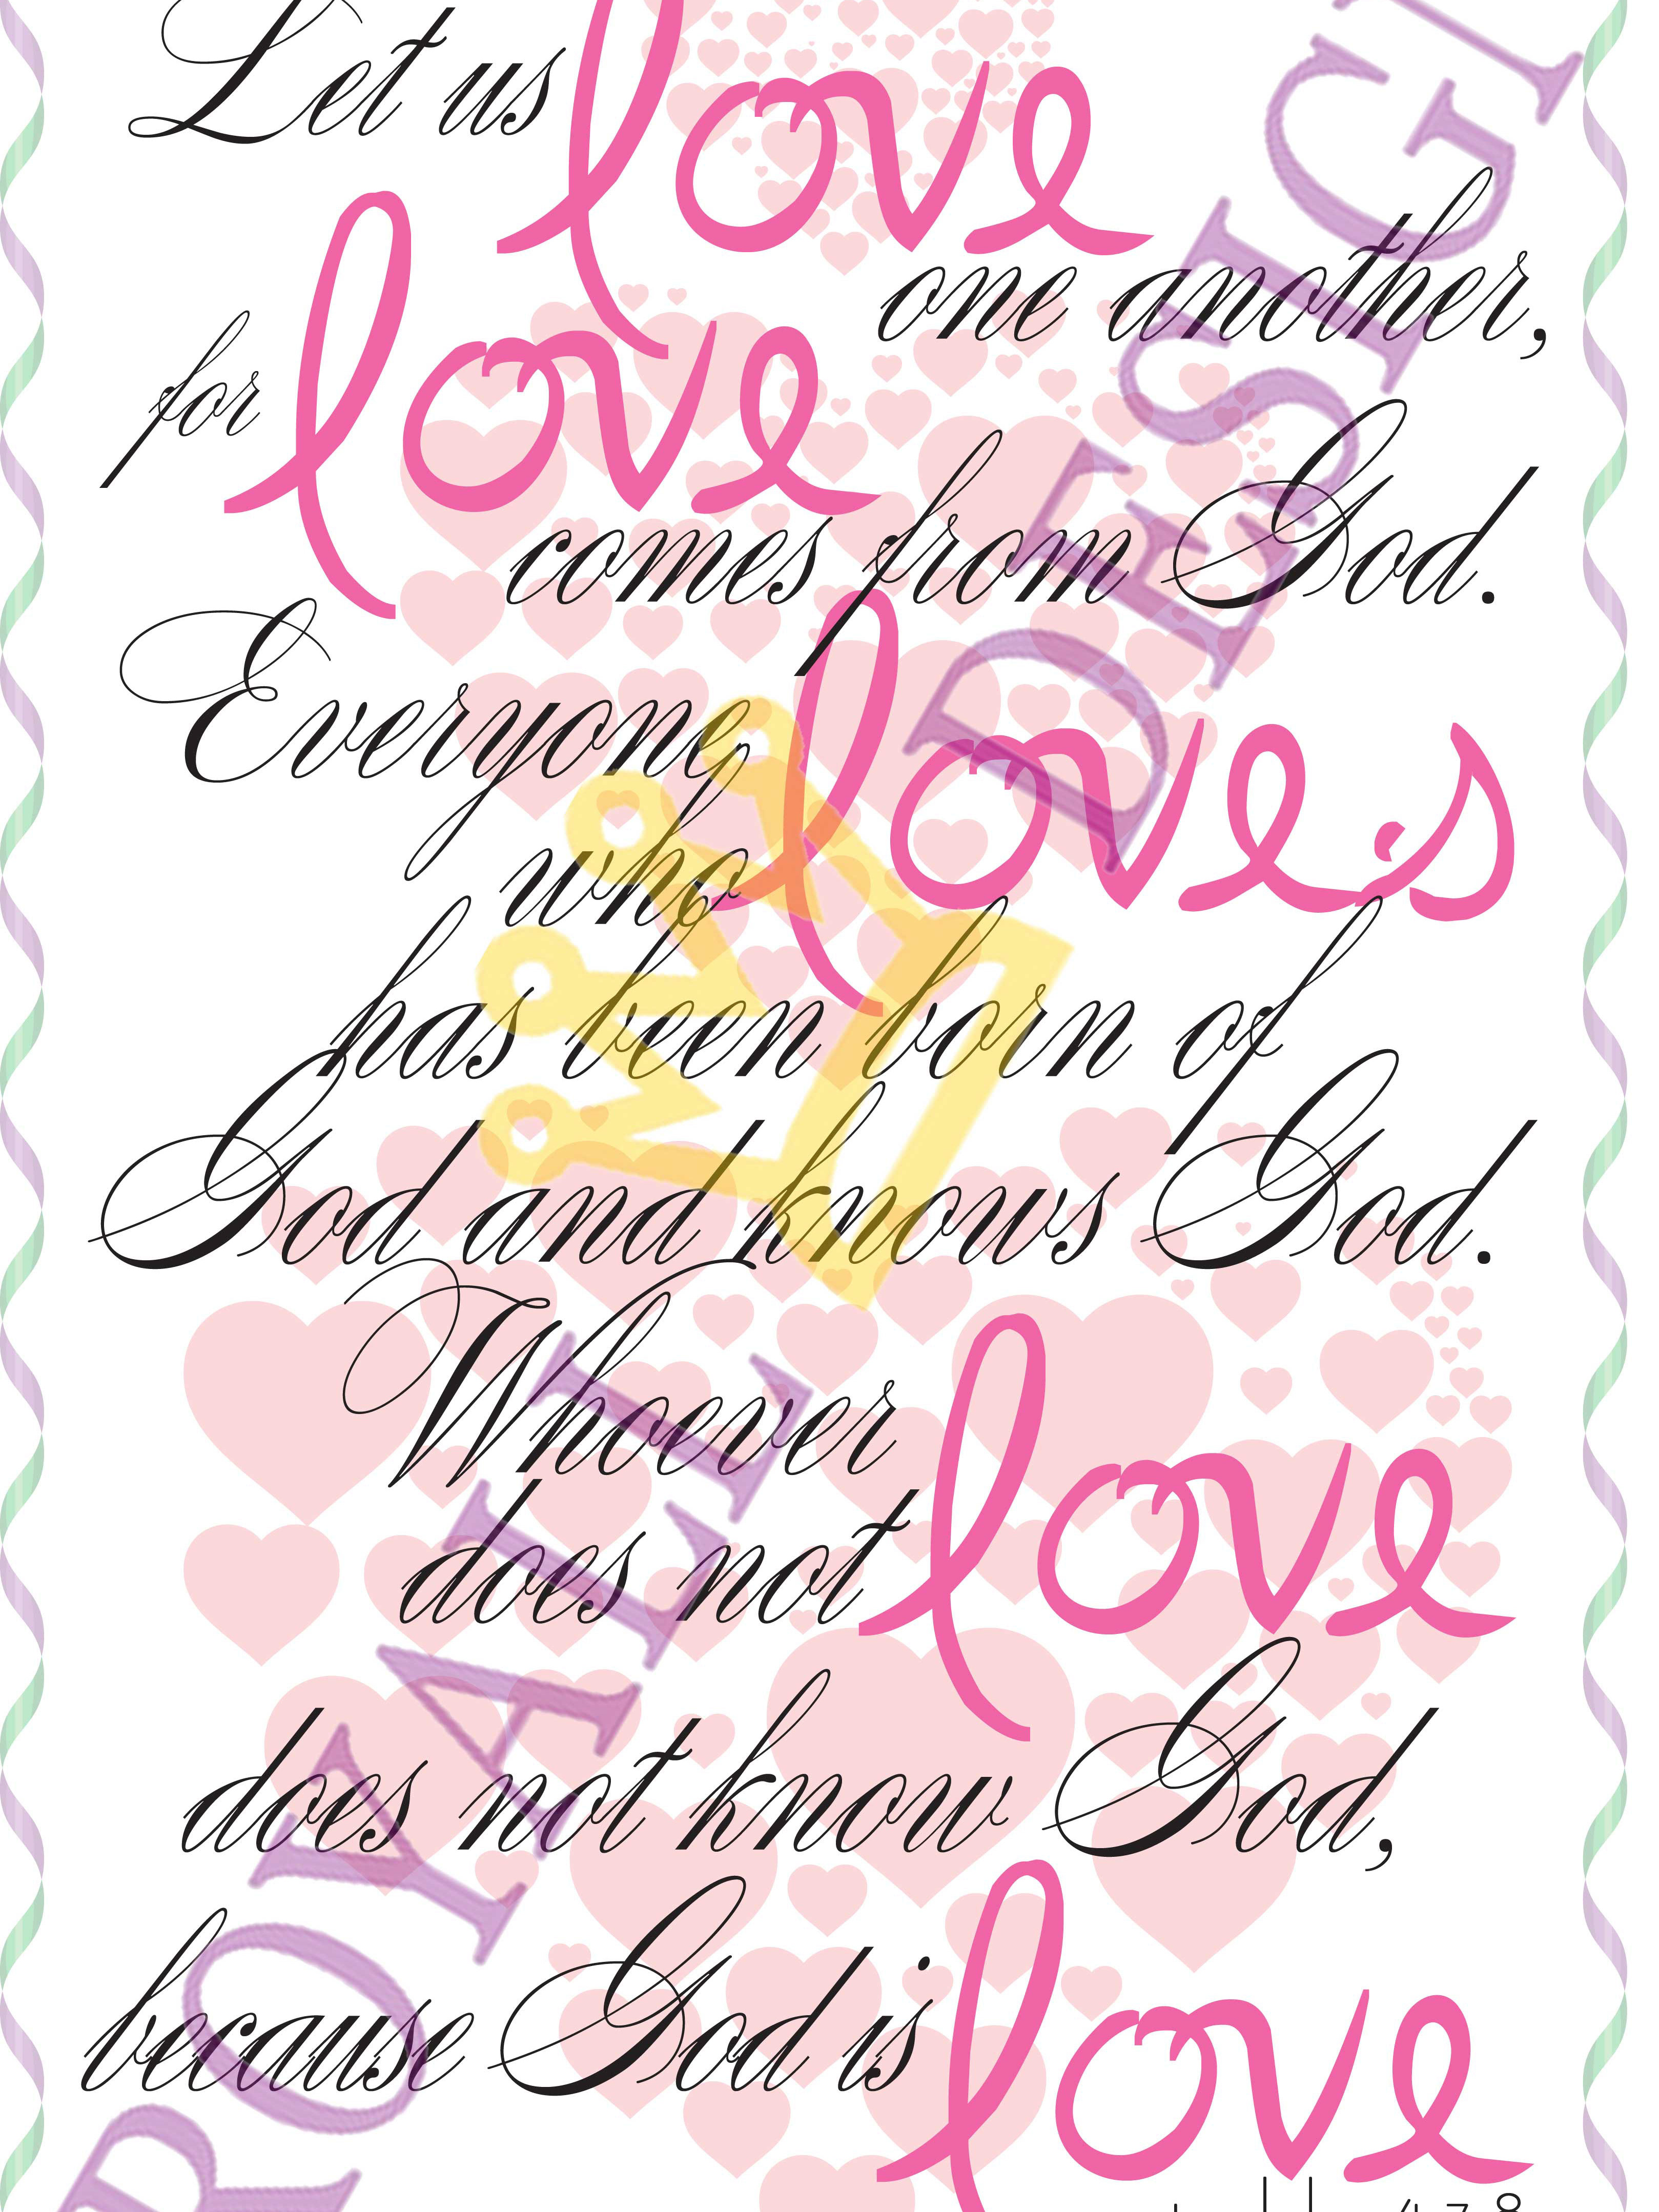 Let us love
one another,
for love
comes from God.
Everyone
who loves
has been born of
God and knows God.
Whoever
does not love
does not know God,
because God is love
4:7-8
ROYALL DESIG